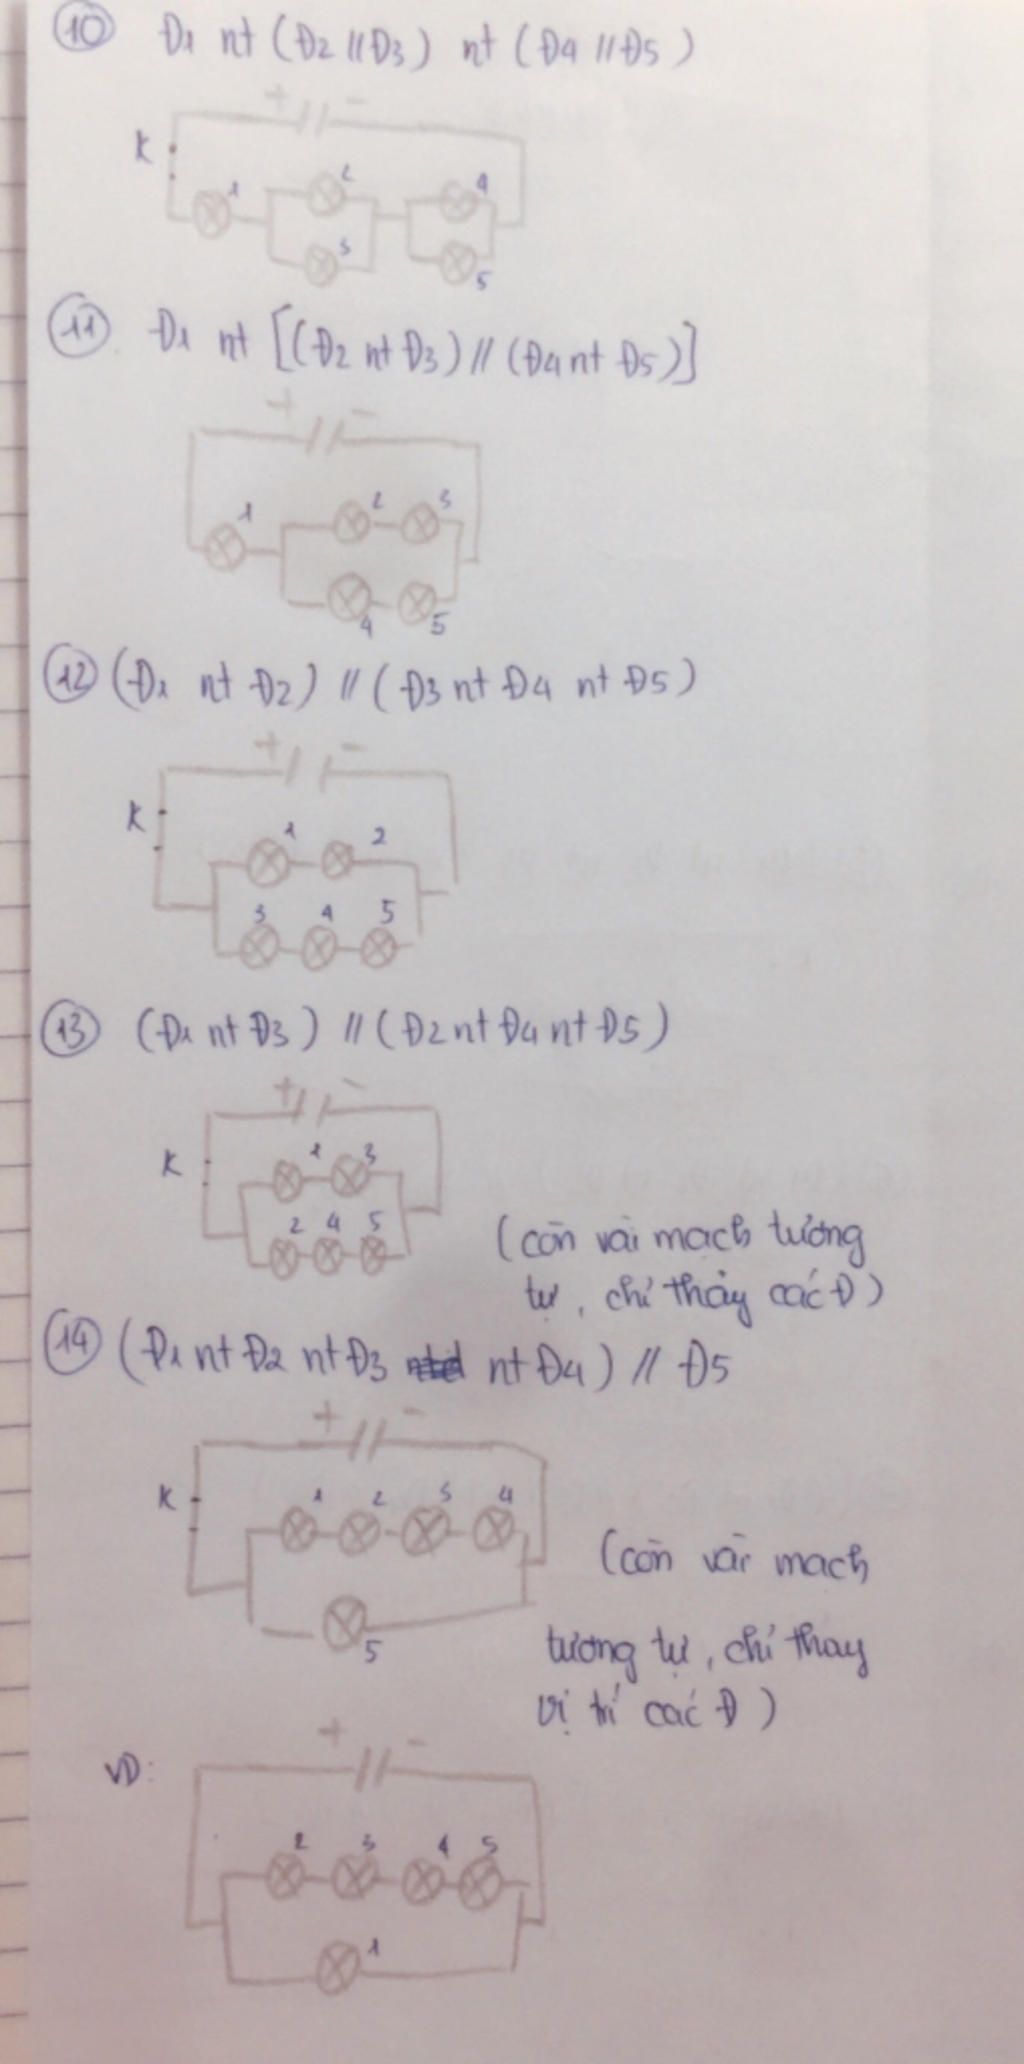 10 Đ1 nt (Đ2 // Đ3) nt (Đ4 // Đ5)
+ -
K
1 2 4
3 5
11 Đ1 nt [(Đ2 nt Đ3) // (Đ4 nt Đ5)]
+ -
1 2 3
4 5
12 (Đ1 nt Đ2) // (Đ3 nt Đ4 nt Đ5)
+ -
K
1 2
3 4 5
13 (Đ1 nt Đ3) // (Đ2 nt Đ4 nt Đ5)
+ -
K
1 3
2 4 5
(còn vài mạch tương
tự, chỉ thay các Đ)
14 (Đ1 nt Đ2 nt Đ3 nt Đ4) // Đ5
+ -
K
1 2 3 4
5
(còn vài mạch
tương tự, chỉ thay
vị trí các Đ)
VD:
+ -
2 3 4 5
1